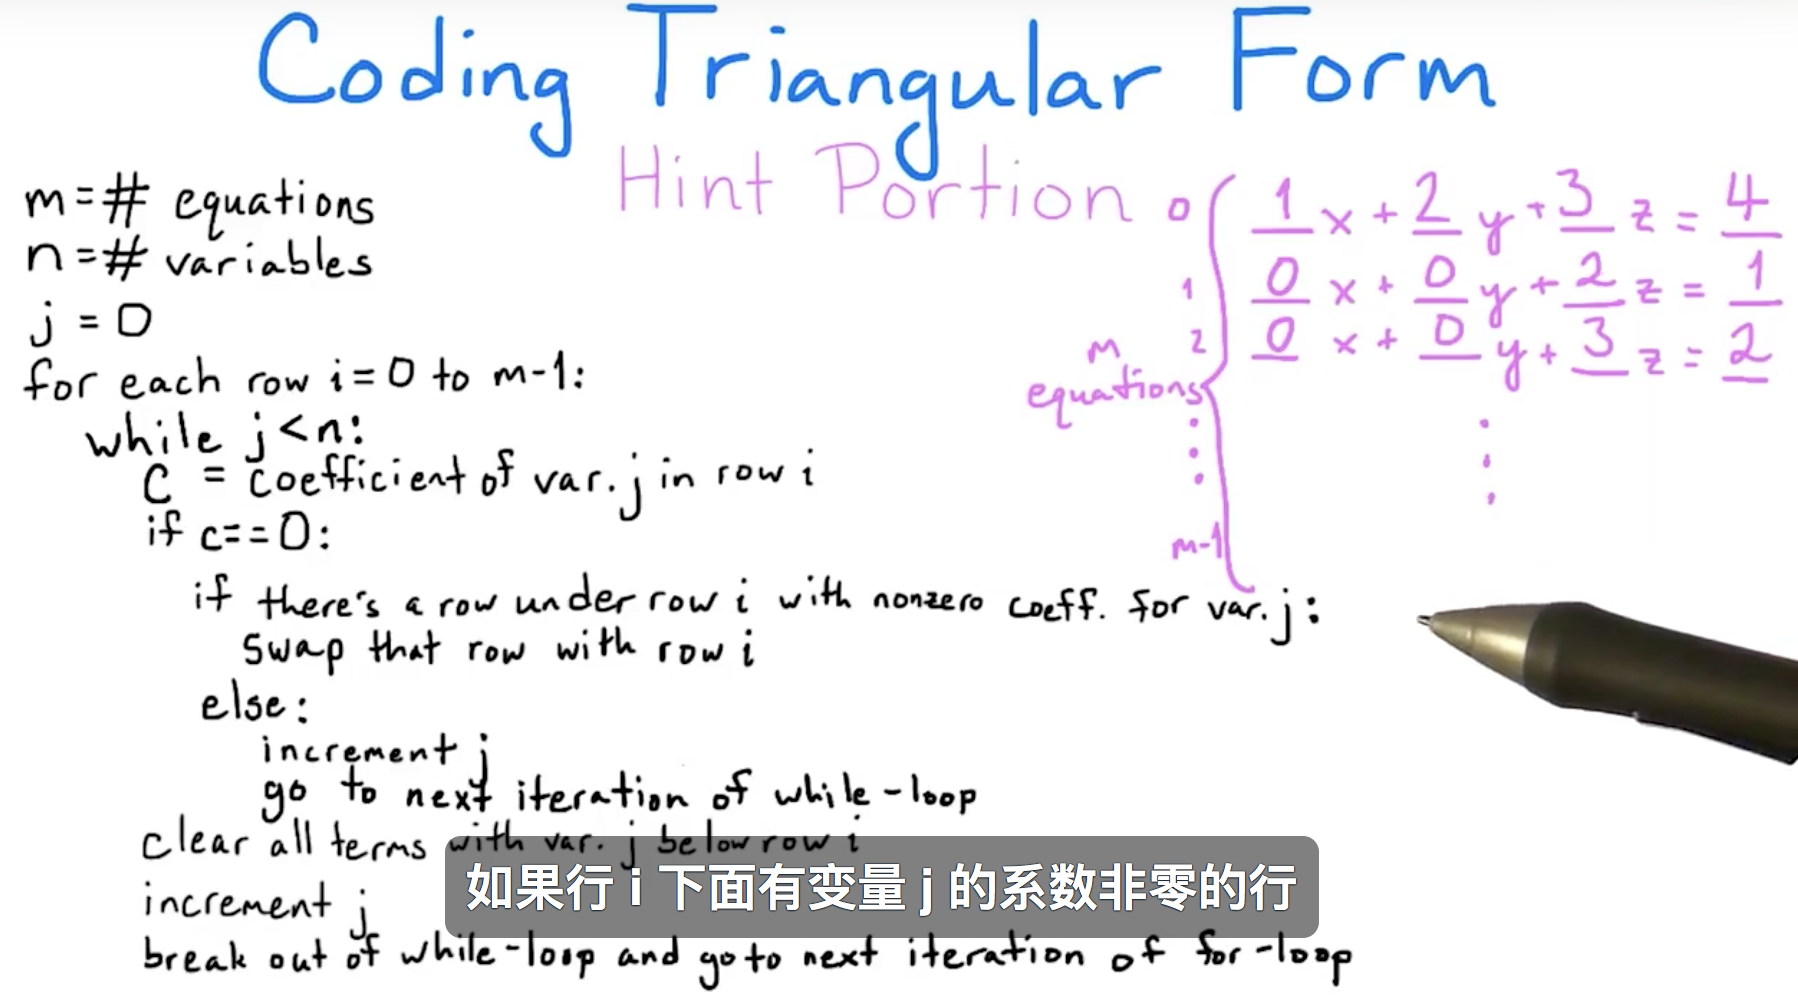 Coding Triangular Form
Hint Portion
m = # equations
n = # variables
j = 0
for each row i = 0 to m-1:
while j < n:
C = coefficient of var. j in row i
if c==0:
if there's a row under row i with nonzero coeff. for var. j:
swap that row with row i
else:
increment j
go to next iteration of while-loop
clear all terms with var. j below row i
increment j
break out of while-loop and go to next iteration of for-loop
0 1 x + 2 y + 3 z = 4
1 0 x + 0 y + 2 z = 1
2 0 x + 0 y + 3 z = 2
m
equations
m-1
如果行 i 下面有变量 j 的系数非零的行